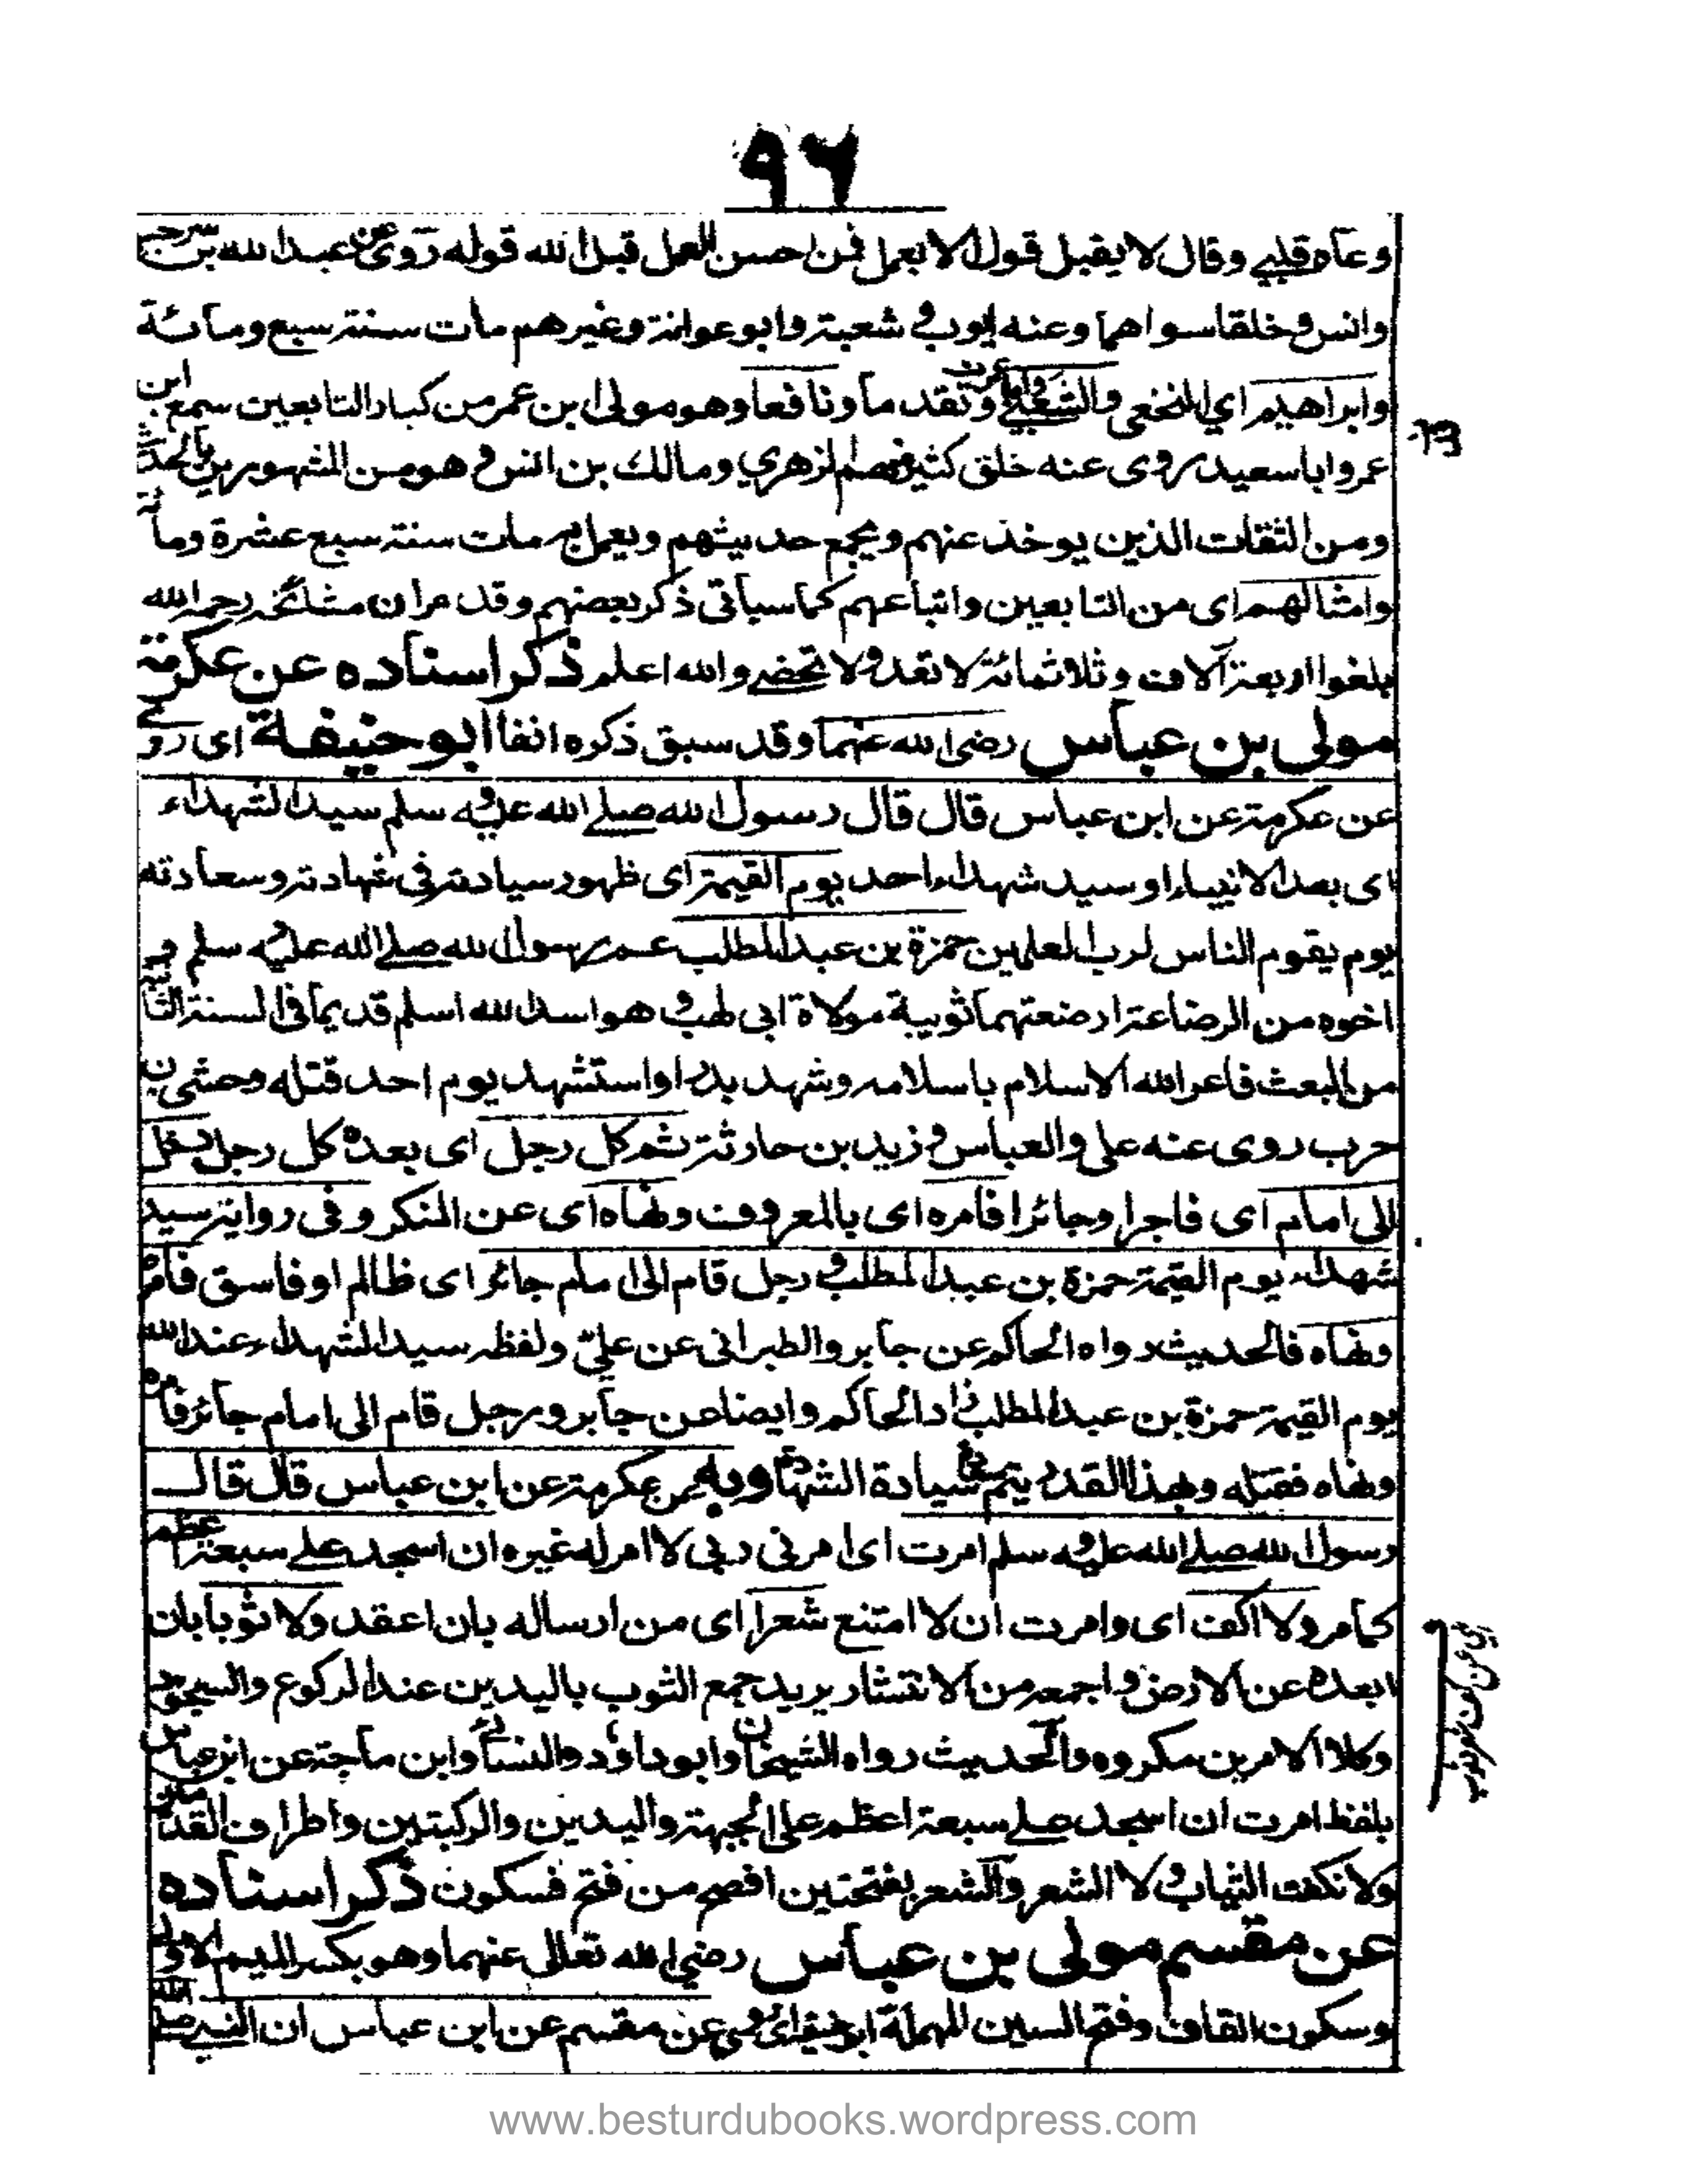 ٩٦
وعاه قلبي وقال لا يقبل قول الا بعمل فمن احسن العمل قبل الله قوله روى عن عبد الله بن سرجس
وانس وخلقا سواهما وعنه ايوب وشعبة وابو عوانة وغيرهم مات سنة سبع ومائة
وابراهيم اي النخعي والشعبي وتقدما ونافعا وهو مولى ابن عمر من كبار التابعين سمع ابن
عمر وابا سعيد روى عنه خلق كثير منهم الزهري ومالك بن انس وهو من المشهورين بالحديث
ومن الثقات الذين يوخذ عنهم ويجمع حديثهم ويعمل به مات سنة سبع عشرة ومائة
وامثالهم اى من التابعين واتباعهم كما سياتى ذكر بعضهم وقد مر ان مشائخه رحمه الله
بلغوا اربعة آلاف وثلاثمائة لا تعد ولا تحصى والله اعلم ذكر اسناده عن عكرمة
مولى بن عباس رضى الله عنهما وقد سبق ذكره انفا ابو حنيفة اى روى
عن عكرمة عن ابن عباس قال قال رسول الله صلى الله عليه وسلم سيد الشهداء
اى بعد الانبياء او سيد شهداء احد يوم القيمة اى ظهور سيادته فى شهادته وسعادته
يوم يقوم الناس لرب العلمين حمزة بن عبد المطلب عم رسول الله صلى الله عليه وسلم و
اخوه من الرضاعة ارضعتهما ثويبة مولاة ابى لهب وهو اسد الله اسلم قديما فى السنة الثانية
من البعث فاعز الله الاسلام باسلامه وشهد بدرا واستشهد يوم احد قتله وحشى بن
حرب روى عنه على والعباس وزيد بن حارثة ثم كل رجل اى بعده كل رجل دخل
الى امام اى فاجرا وجائرا فامره اى بالمعروف ونهاه اى عن المنكر وفى رواية سيد
شهداء يوم القيمة حمزة بن عبد المطلب ورجل قام الى امام جائر اى ظالم او فاسق فامره
ونهاه فالحديث رواه الحاكم عن جابر والطبرانى عن على ولفظه سيد الشهداء عند الله
يوم القيمة حمزة بن عبد المطلب زاد الحاكم وايضا عن جابر ورجل قام الى امام جائر فامره
ونهاه فقتله وبهذا القدر يتم سيادة الشهادة وبه عن عكرمة عن ابن عباس قال قال
رسول الله صلى الله عليه وسلم امرت اى امرنى ربى لا امر له غيره ان اسجد على سبعة اعظم
كما مر ولا اكف اى وامرت ان لا امتنع شعرا اى من ارساله بان اعقد ولا ثوبا بان
ابعده عن الارض واجمعه من الانتشار يريد جمع الثوب باليدين عند الركوع والسجود
وكلا الامرين مكروه والحديث رواه الشيخان وابو داود والنسائى وابن ماجة عن ابن عباس
بلفظ امرت ان اسجد على سبعة اعظم على الجبهة واليدين والركبتين واطراف القدمين
ولا نكفت الثياب ولا الشعر والشعر بفتحتين افصح من فتح فسكون ذكر اسناده
عن مقسم مولى بن عباس رضى الله تعالى عنهما وهو بكسر الميم الاولى
وسكون القاف وفتح السين المهملة ابو حنيفة اى روى عن مقسم عن ابن عباس ان النبى صلى الله
www.besturdubooks.wordpress.com